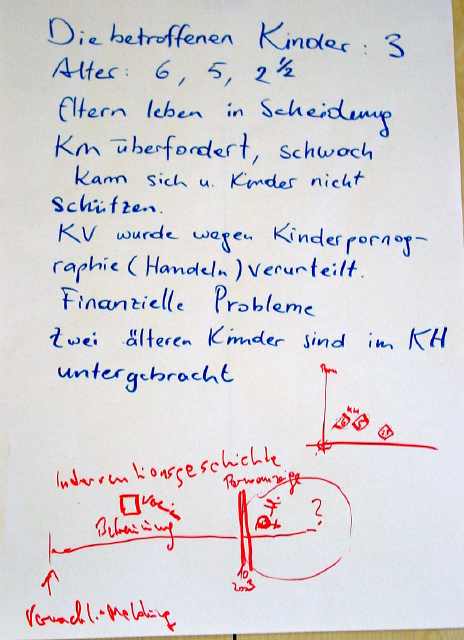 Die betroffenen Kinder: 3
Alter: 6, 5, 2 1/2
Eltern leben in Scheidung
Km überfordert, schwach
kann sich u. Kinder nicht
schützen.
KV wurde wegen Kinderpornog-
raphie (Handeln) verurteilt.
Finanzielle Probleme
Zwei älteren Kinder sind im KH
untergebracht
KH
6 5
Interventionsgeschichte
Betreuung
?
10
2003
Vernachl.-Meldung